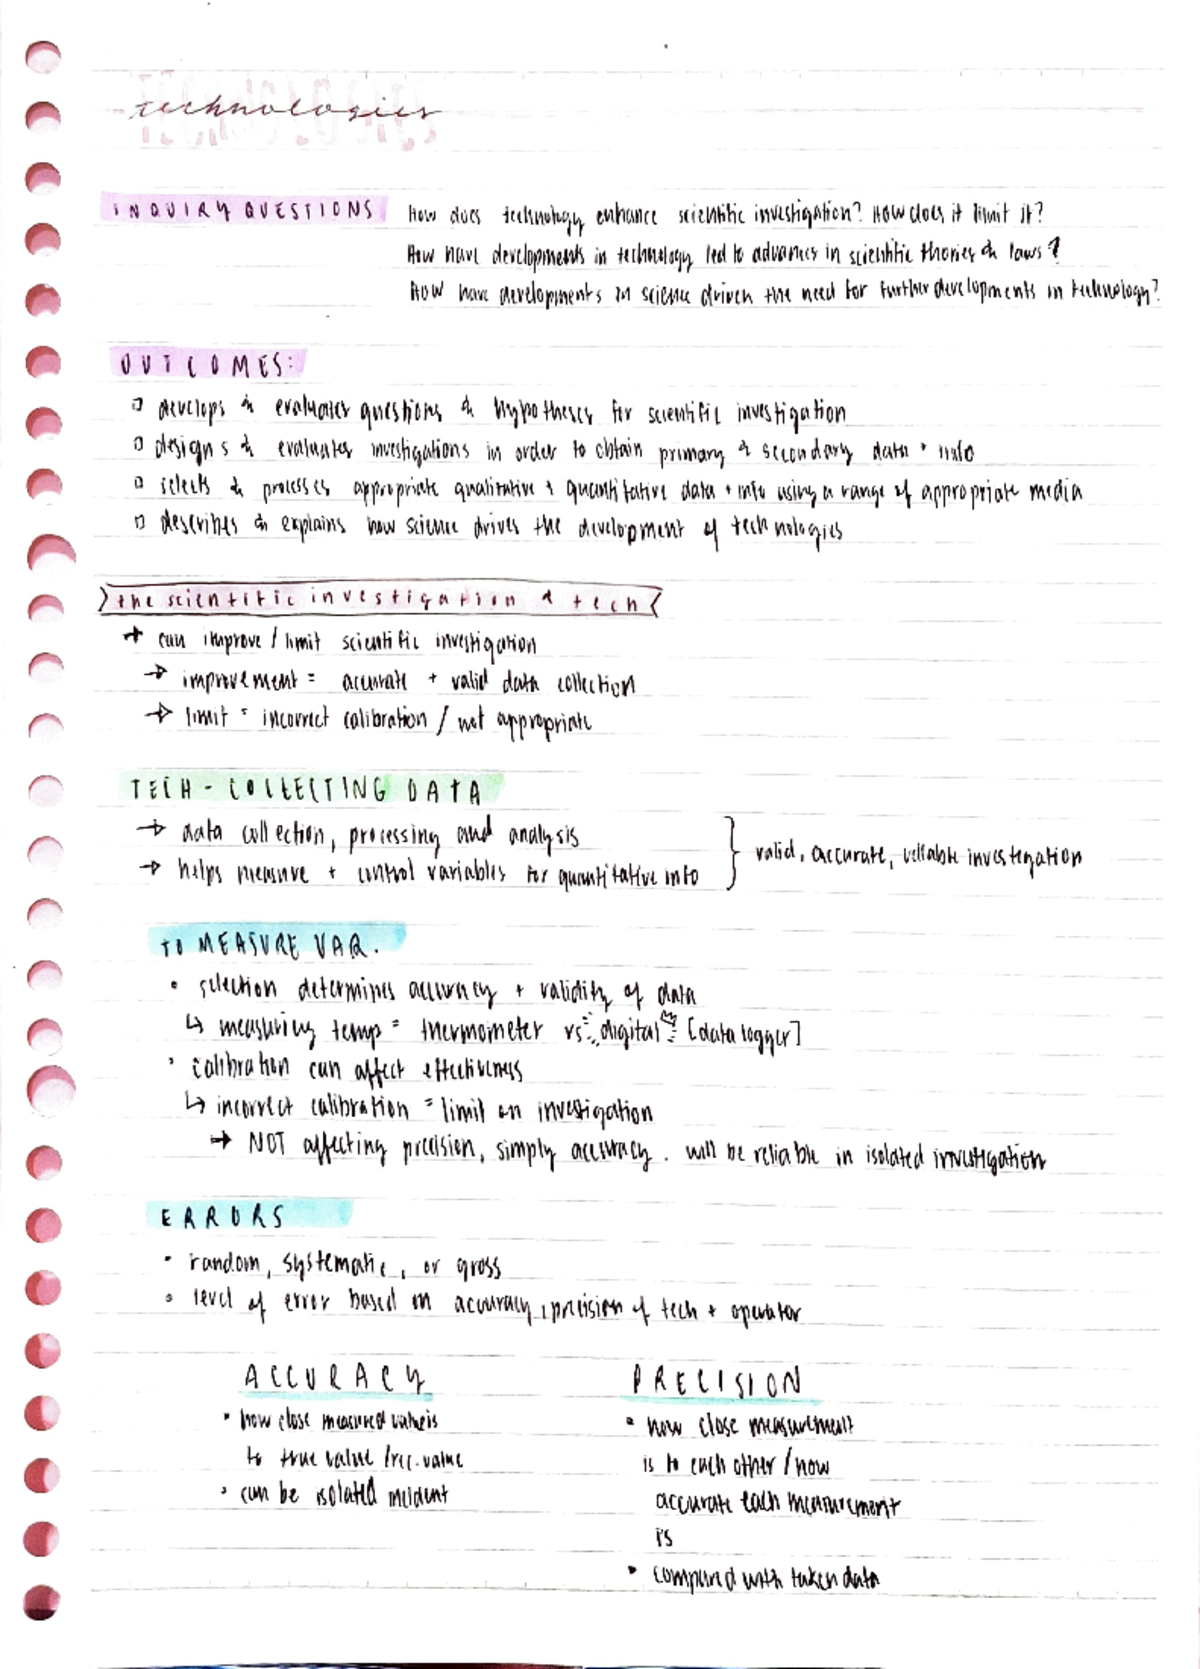 technologies
TECHNOLOGIES
INQUIRY QUESTIONS How does technology enhance scientific investigation? How does it limit it?
How have developments in technology led to advances in scientific theories & laws?
How have developments in science driven the need for further developments in technology?
OUTCOMES:
develops & evaluates questions & hypotheses for scientific investigation
designs & evaluates investigations in order to obtain primary & secondary data + info
selects & processes appropriate qualitative + quantitative data + info using a range of appropriate media
describes & explains how science drives the development of technologies
the scientific investigation & tech
+ can improve / limit scientific investigation
→ improvement = accurate + valid data collection
→ limit = incorrect calibration / not appropriate
TECH - COLLECTING DATA
→ data collection, processing and analysis
→ helps measure + control variables for quantitative info } valid, accurate, reliable investigation
TO MEASURE VAR.
• selection determines accuracy + validity of data
↳ measuring temp = thermometer vs digital [data logger]
• calibration can affect effectiveness
↳ incorrect calibration = limit on investigation
→ NOT affecting precision, simply accuracy. will be reliable in isolated investigation
ERRORS
• random, systematic, or gross
• level of error based on accuracy, precision of tech + operator
ACCURACY
• how close measured value is
to true value / rec. value
• can be isolated incident
PRECISION
• how close measurement
is to each other / how
accurate each measurement
is
• compared with taken data